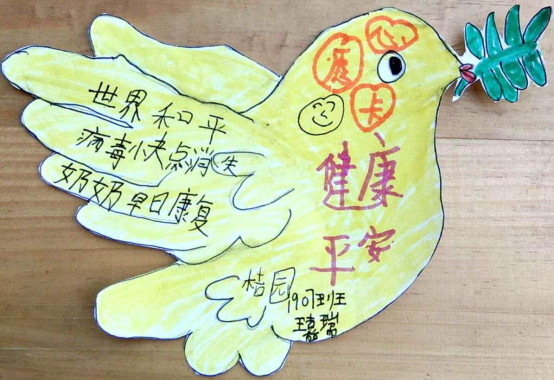 心愿卡
世界和平
病毒快点消失
奶奶早日康复
健康
平安
桔园
1907班